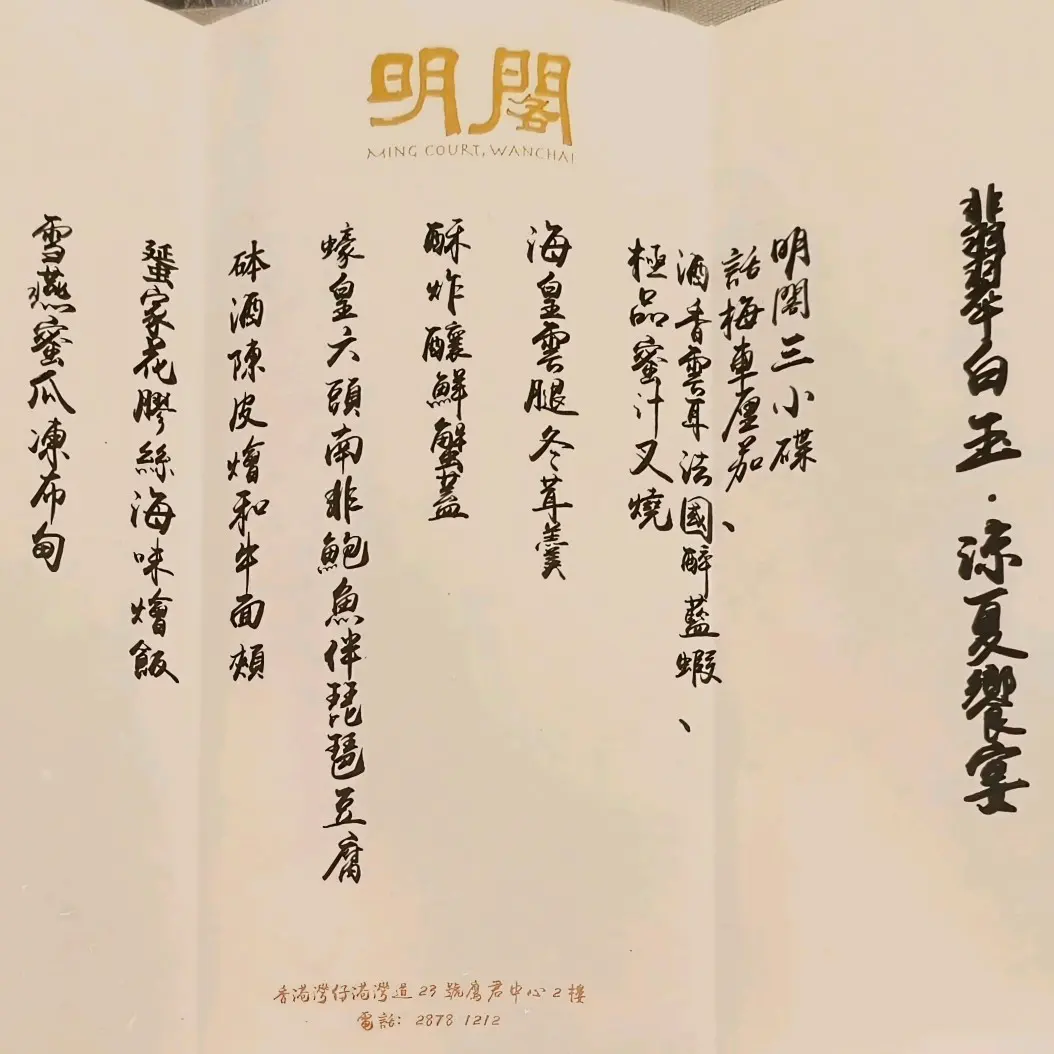 明閣
MING COURT, WANCHAI
翡翠白玉·涼夏饗宴
明閣三小碟
話梅車厘茄、
酒香雲耳法國醉藍蝦、
極品蜜汁叉燒
海皇雲腿冬茸羹
酥炸釀鮮蟹蓋
蠔皇六頭南非鮑魚伴琵琶豆腐
砵酒陳皮燴和牛面頰
蜑家花膠絲海味燴飯
雪燕蜜瓜凍布甸
香港灣仔港灣道23號鷹君中心2樓
電話: 2878 1212